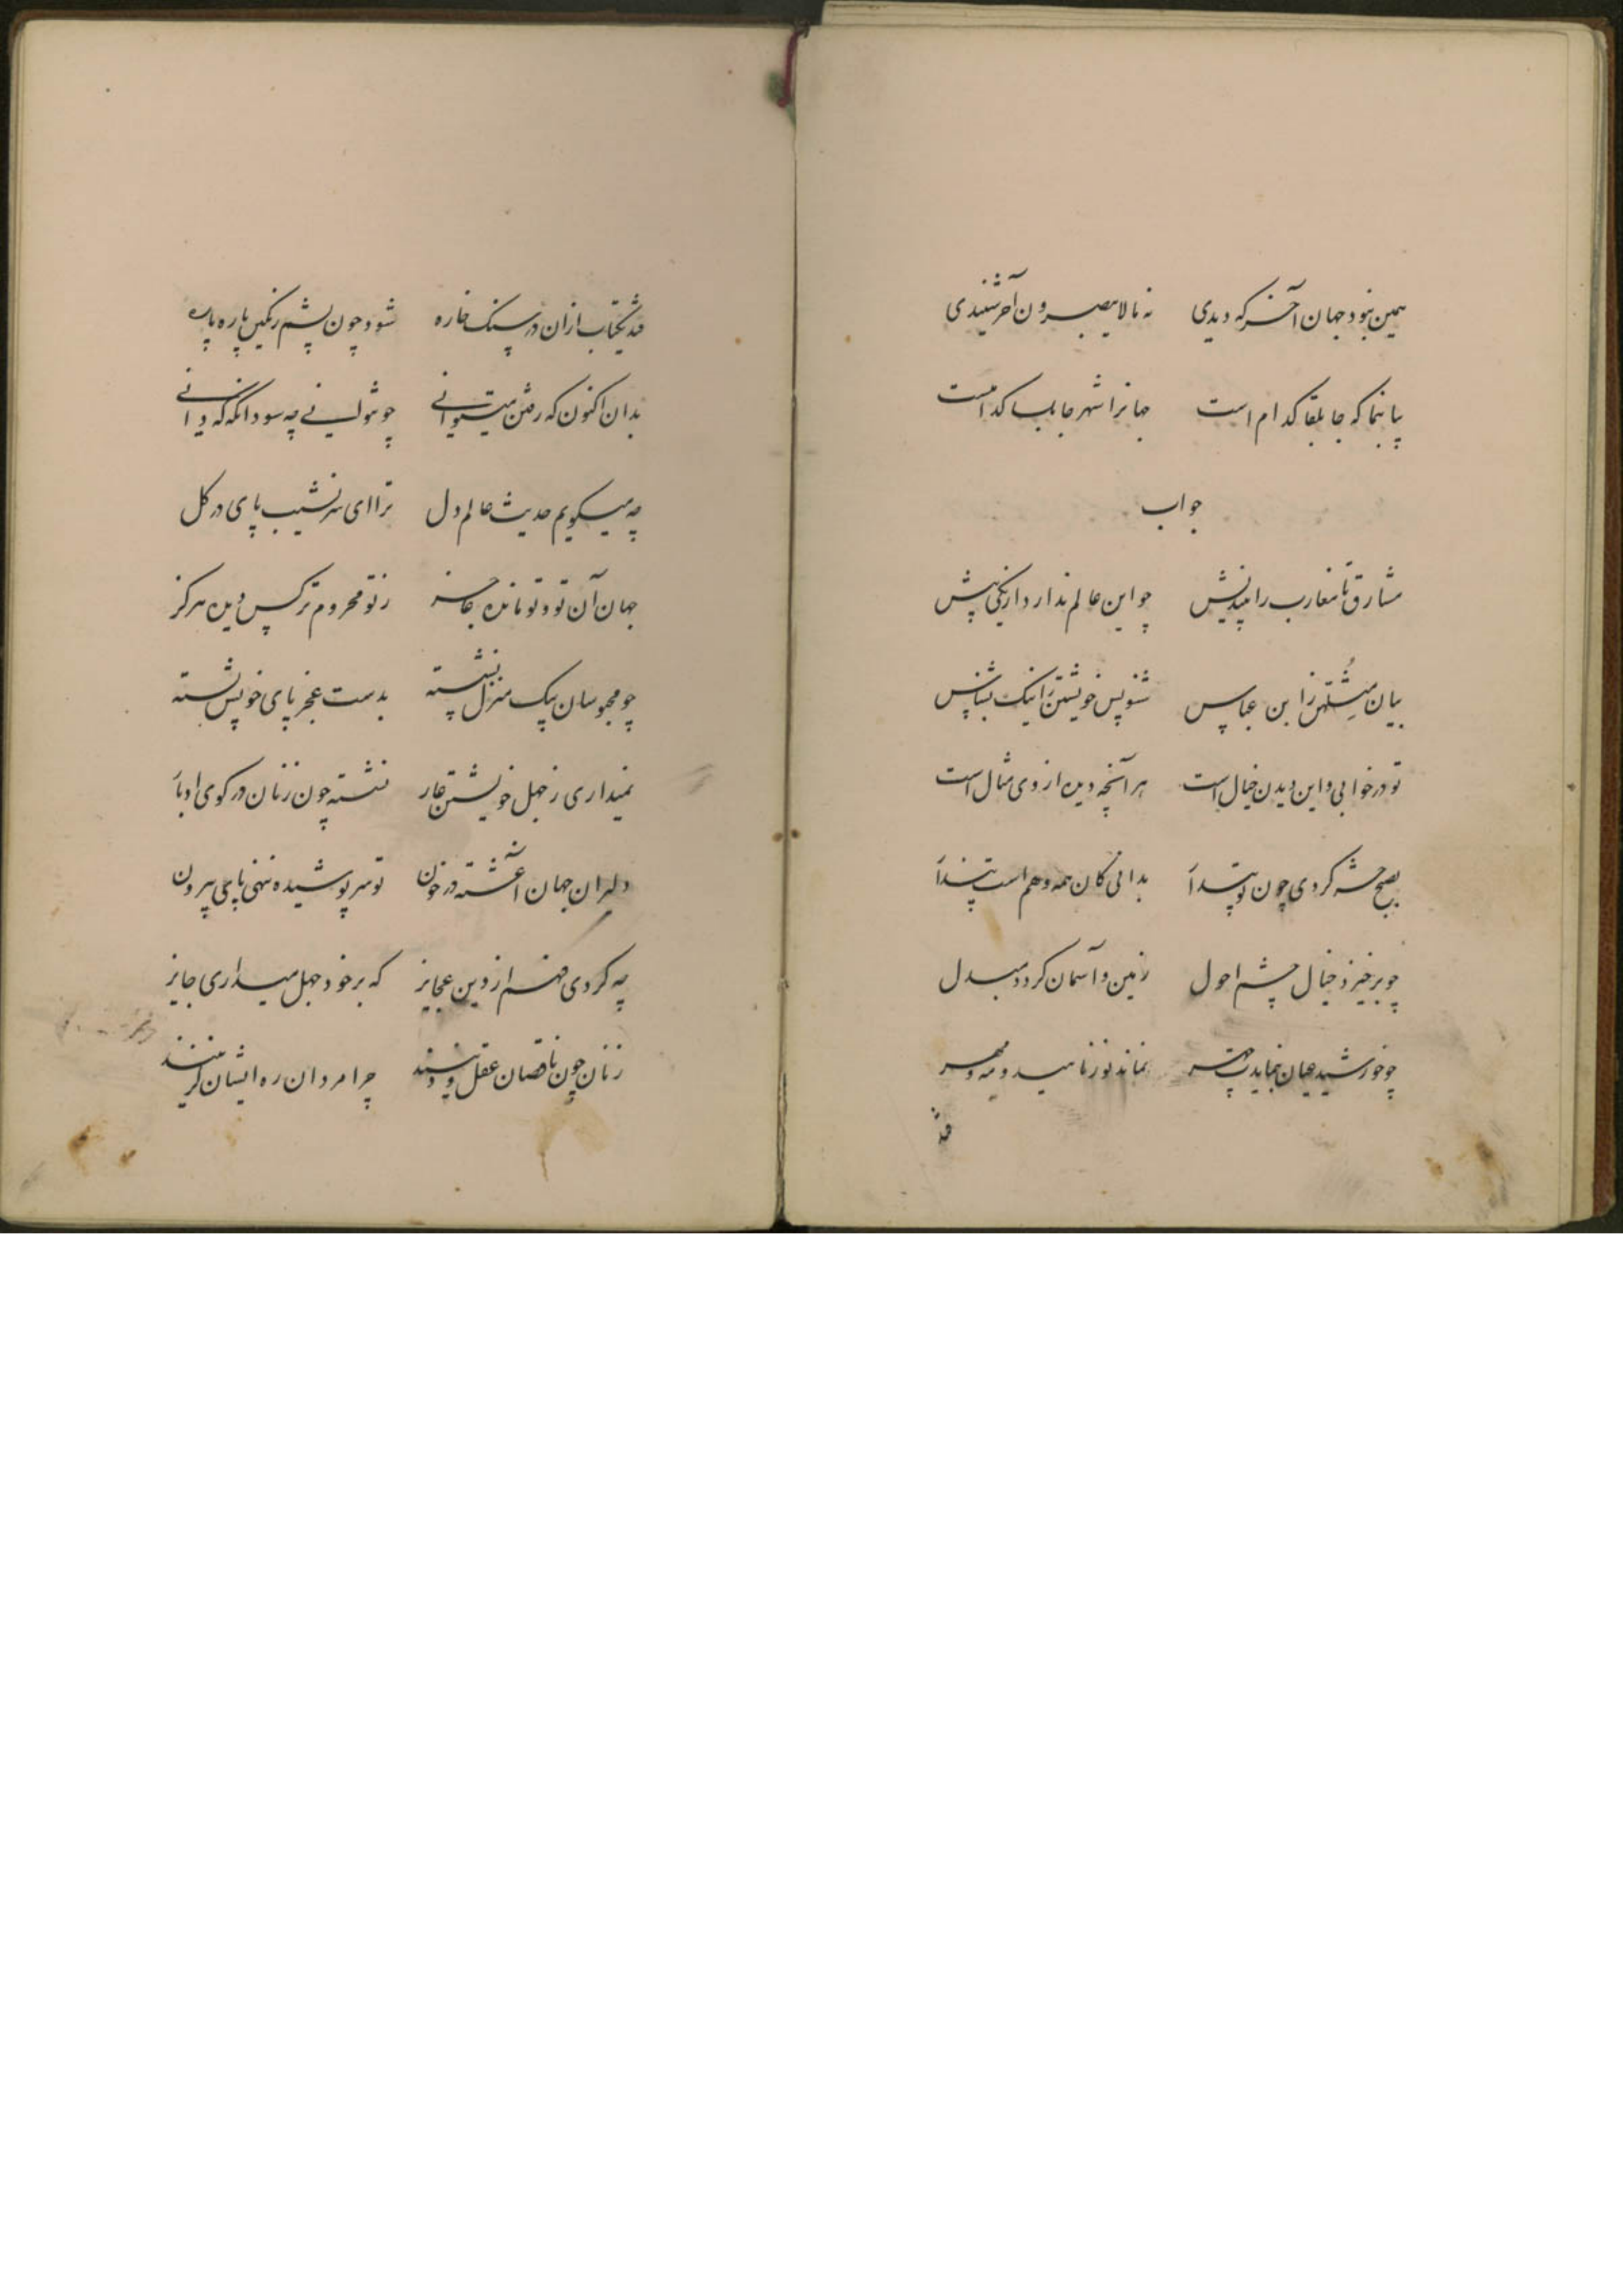 همین نبود جهان آخر که دیدی نه ما لا یبصرون آخر شنیدی
بیا بنما که جابلقا کدام است جهانرا شهر جابلسا کدامست
جواب
مشارق تا مغارب را بیندیش چو این عالم ندارد از یکی بیش
بیان مثلهن ز ابن عباس شنو پس خویشتن را نیک بشناس
تو در خوابی و این دیدن خیال است هر آنچه دیده از وی مثال است
بصبح حشر کردی چون تو بیدار بدانی کان همه وهم است پندار
چو برخیزد خیال چشم احول زمین و آسمان کردد مبدل
چو خورشید عیان بنمایدت چهر نماند نور ناهید و مه و مهر
فتد
فتد یکتاب ازان در سنک خاره شود چون پشم رنکین پاره پاره
بدان اکنون که رفتن میتوانی چو نتوانی چه سود انکه که دانی
چه میکویم حدیث عالم دل ترا ای سر نشیب پای در کل
جهان آن تو و تو مانده عاجز ز تو محروم تر کس دیده هرکز
چو محبوسان بیک منزل نشسته بدست عجز پای خویش بسته
نمیداری ز جهل خویشتن عار نشسته چون زنان در کوی ادبار
دلیران جهان آغشته در خون تو سر پوشیده ننهی پای بیرون
چه کردی فهم از دین عجایز که بر خود جهل میداری جایز
زنان چون ناقصان عقل و دینند چرا مردان ره ایشان کزینند